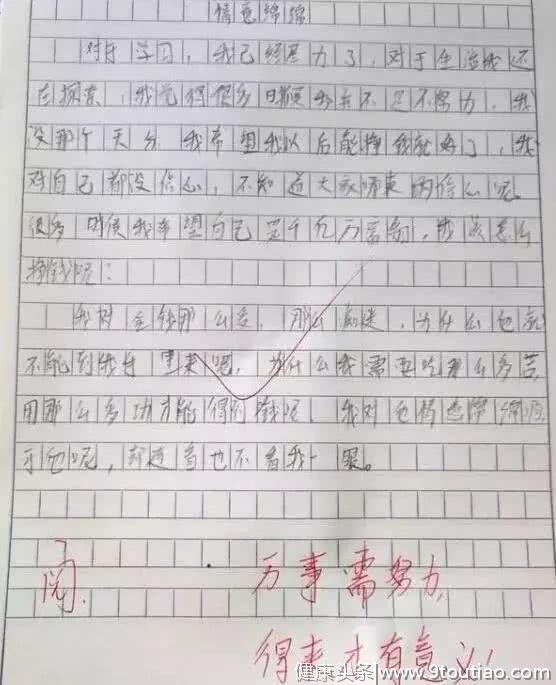 情意绵绵
对于学习，我已经尽力了，对于生活我还
在探索，我觉得很多时候我并不是不努力，我
没那个天分 我希望我以后能挣钱就好了，我
对自己都没信心，不知道大家哪来的信心呢。
很多时候我希望自己是千亿万富翁，我该怎么
挣钱呢？
我对金钱那么爱，那么痴迷，为什么他就
不能到我手里来呢，为什么我需要吃那么多苦
用那么多功才能得到钱呢 我对他情意绵绵
于他呢，却连看也不看我一眼。
阅. 万事需努力，
得来才有意义！
健康头条 www.9toutiao.com